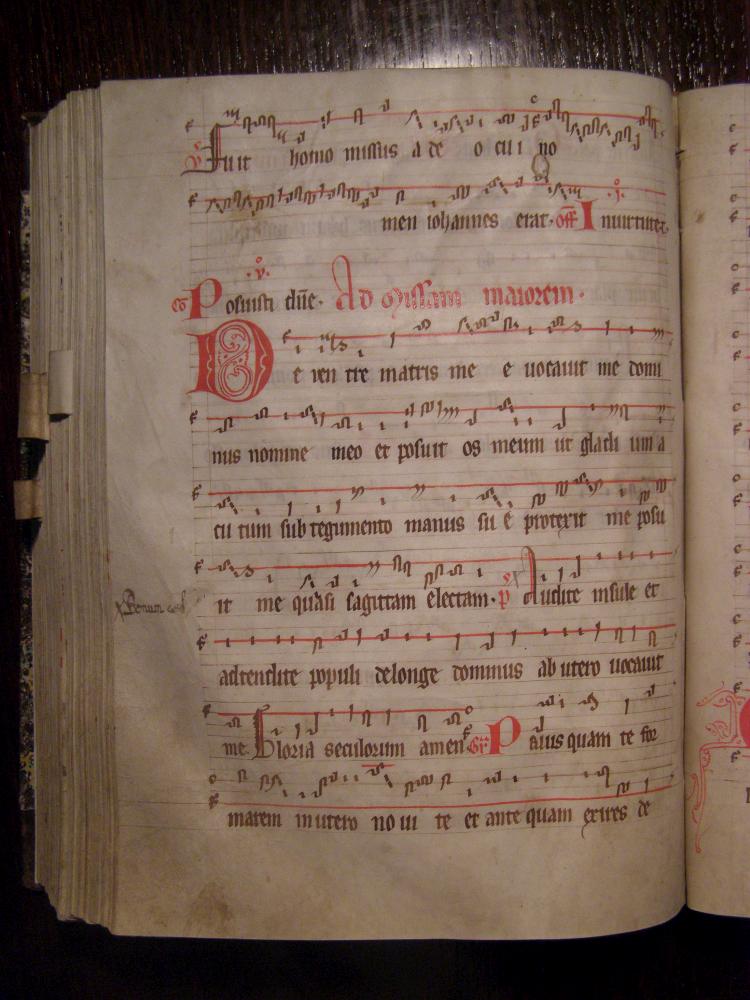 Fuit homo missus a de o cui no
men iohannes erat. off In uirtute.
co Posuisti dne. Ad missam maiorem.
De ven tre matris me e uocauit me domi
nus nomine meo et posuit os meum ut gladi um a
cu tum sub tegumento manus su e protexit me posu
it me quasi sagittam electam. p Audite insule et
adtendite populi de longe dominus ab utero uocauit
me. Gloria seculorum amen Gr Priusquam te for
marem in utero no ui te et ante quam exires de